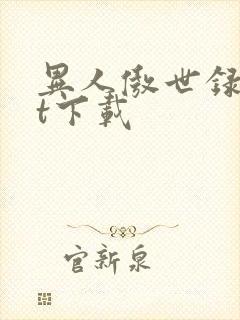 異人傲世録
t下載
官新泉